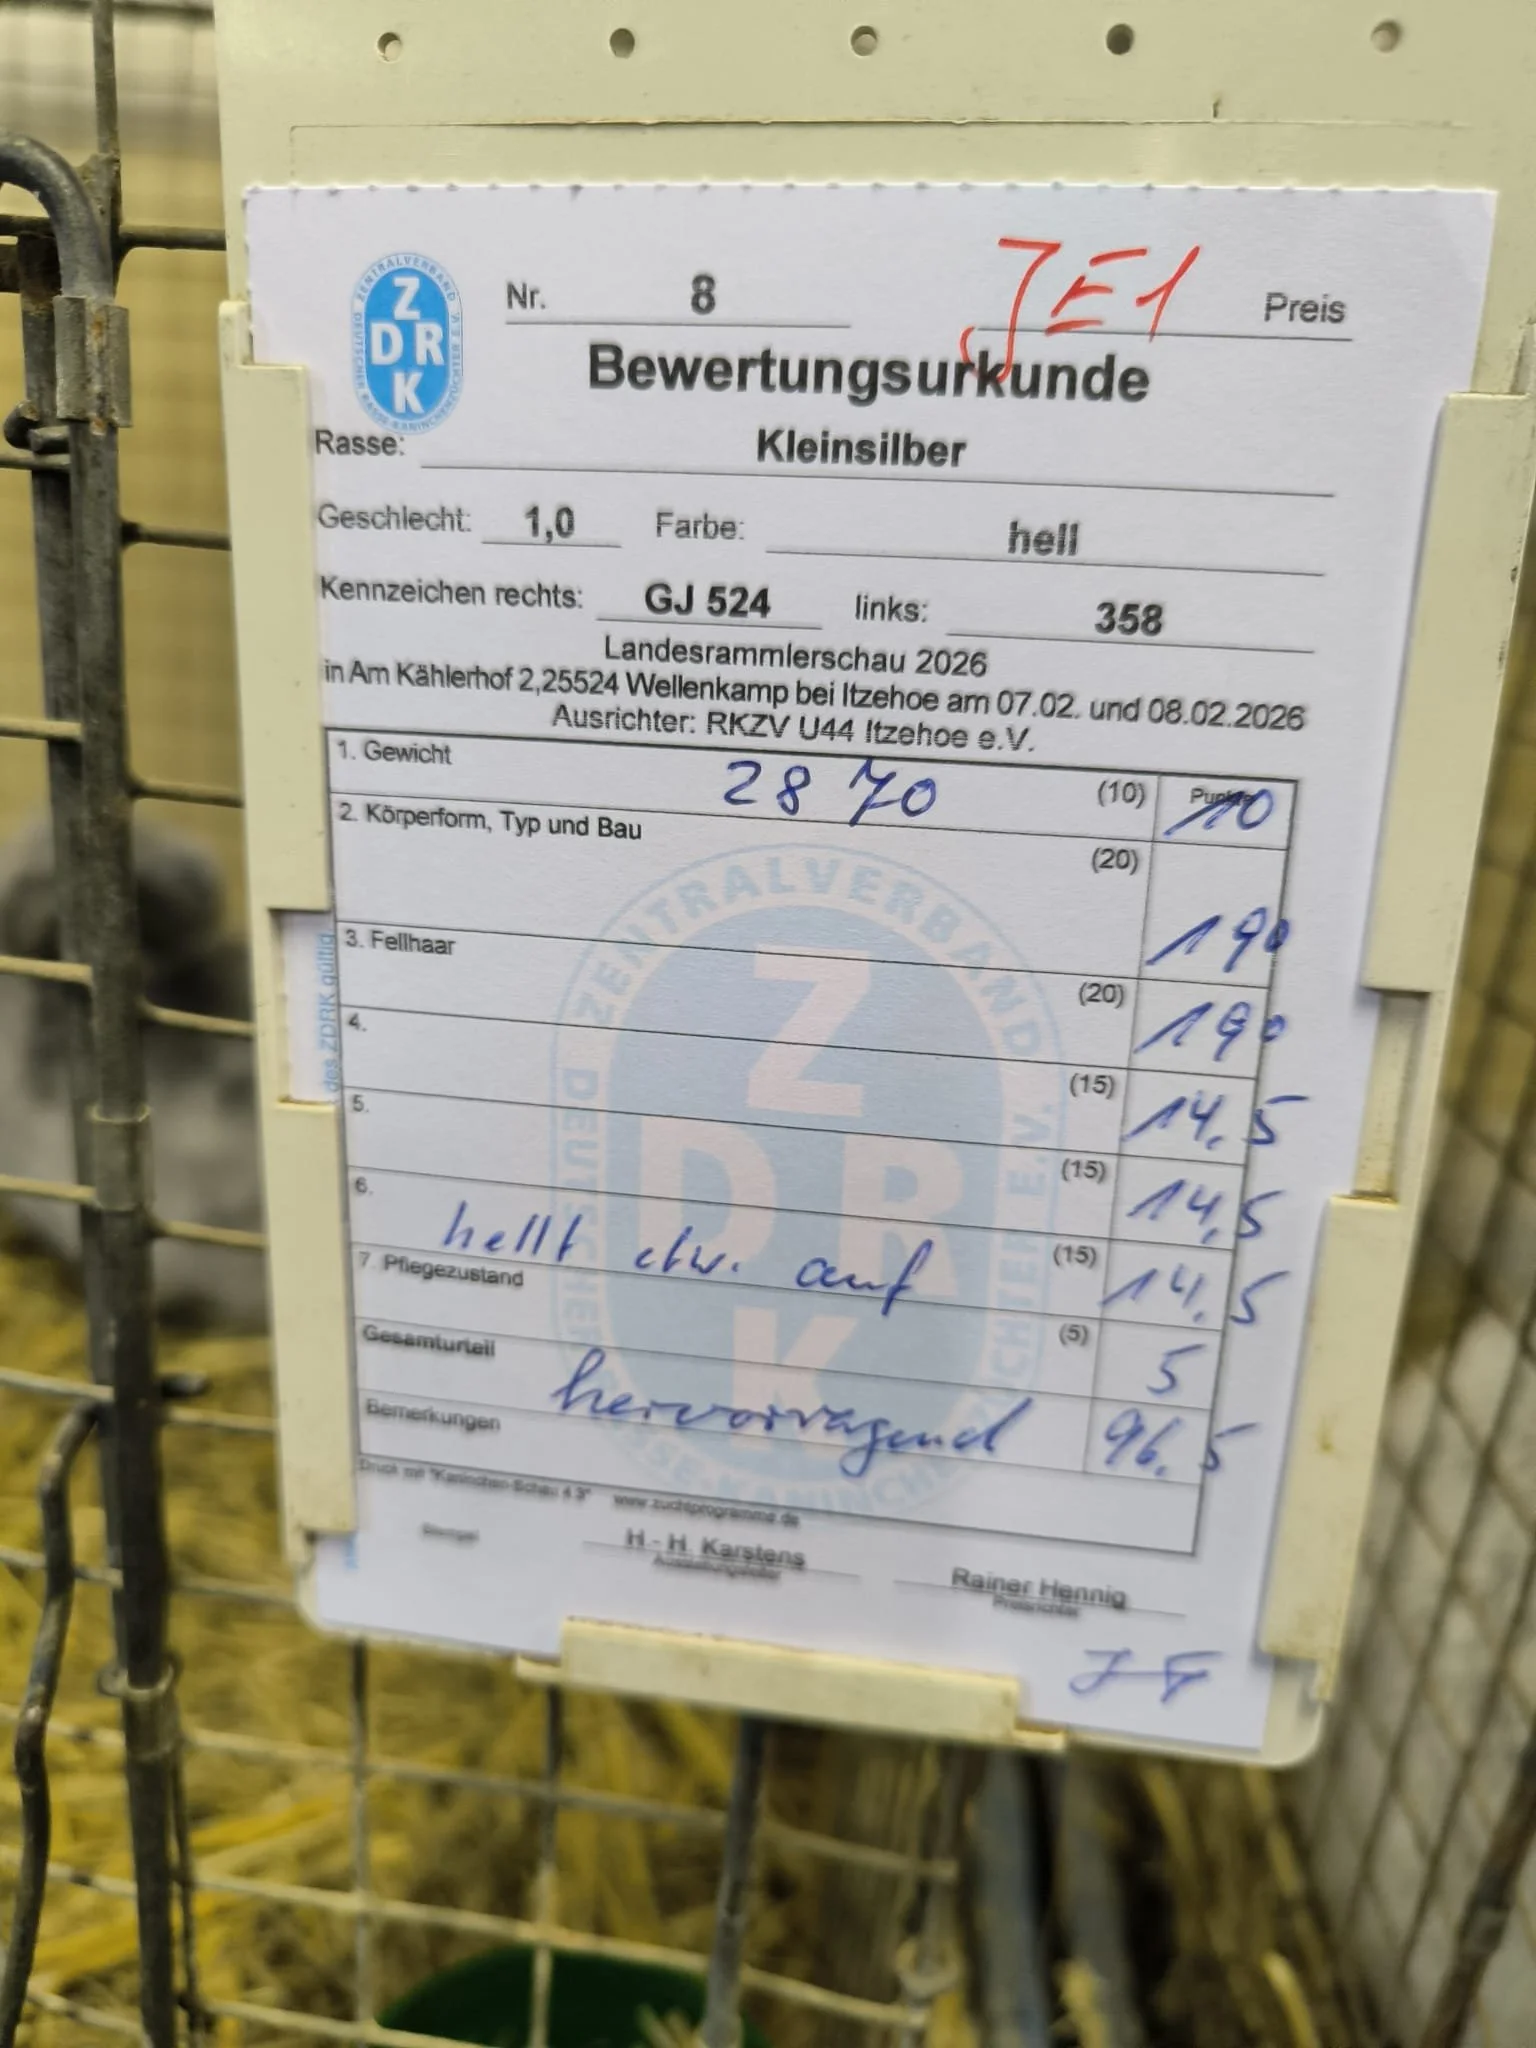 ZENTRALVERBAND DEUTSCHER RASSE-KANINCHENZÜCHTER E.V.
ZDRK
Nr. 8 JE1 Preis
Bewertungsurkunde
Rasse: Kleinsilber
Geschlecht: 1,0 Farbe: hell
Kennzeichen rechts: GJ 524 links: 358
Landesrammlerschau 2026
in Am Kählerhof 2,25524 Wellenkamp bei Itzehoe am 07.02. und 08.02.2026
Ausrichter: RKZV U44 Itzehoe e.V.
1. Gewicht 2870 (10) Punkte 10
2. Körperform, Typ und Bau (20) 19,0
3. Fellhaar (20) 19,0
4. (15) 14,5
5. (15) 14,5
6. hellt etw. auf (15) 14,5
7. Pflegezustand (5) 5
Gesamturteil hervorragend 96,5
Bemerkungen
Druck mit "Kaninchen-Schau 4.3" www.zuchtprogramme.de
Stempel
H.- H. Karstens
Ausstellungsleiter
Rainer Hennig
Preisrichter
des ZDRK gültig